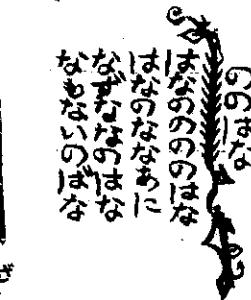 ののはな
はなののののはな
はなのななあに
なずななのはな
なもないのばな